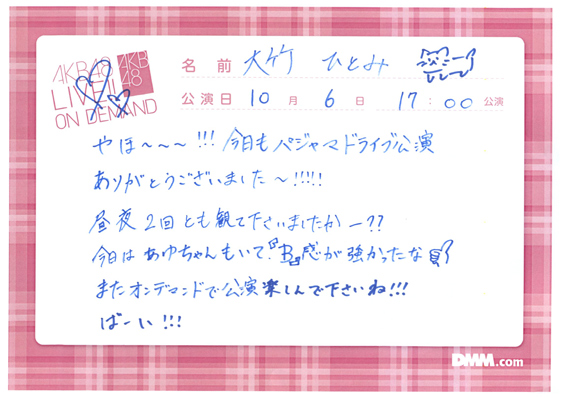 AKB48
LIVE!!
ON DEMAND
AKB
48
名前 大竹 ひとみ
公演日 10月 6日 17:00 公演
やほ〜〜〜!!! 今日もパジャマドライブ公演
ありがとうございました〜!!!!!
昼夜2回とも観て下さいましたかー??
今日はあゆちゃんもいて、『B』感が強かったな
またオンデマンドで公演楽しんで下さいね!!!
ばーい!!!
DMM.com